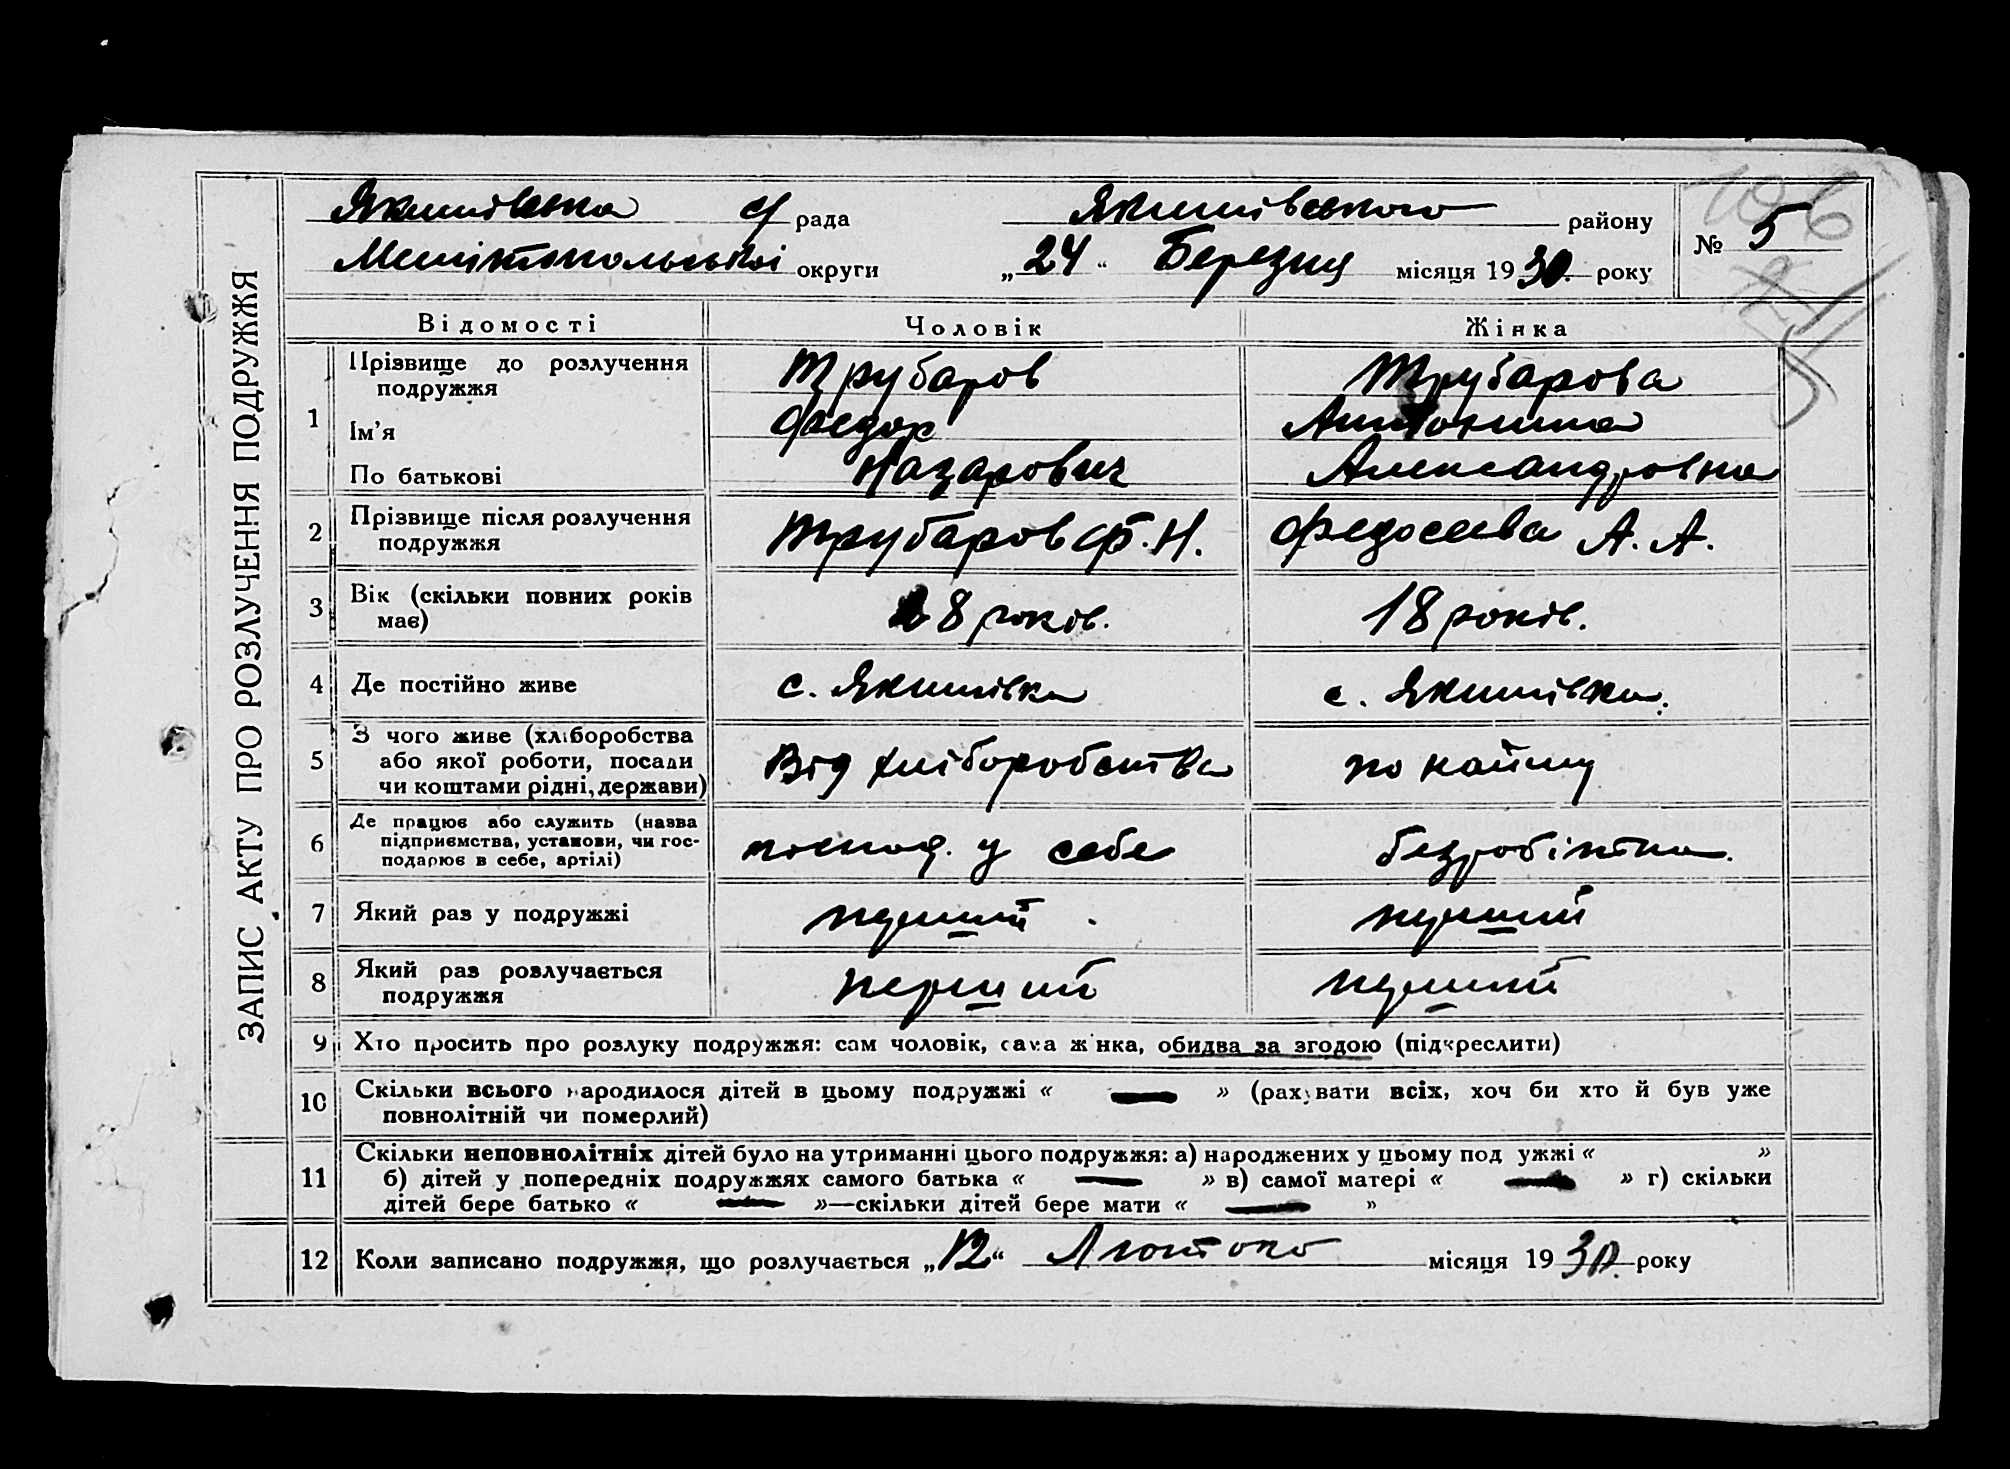 ЗАПИС АКТУ ПРО РОЗЛУЧЕННЯ ПОДРУЖЖЯ
Якимівська с/ рада Якимівського району
Мелітопольської округи „24“ Березня місяця 1930 року
№ 5
Відомості Чоловік Жінка
1 Прізвище до розлучення подружжя Трубаров Трубарова
Ім'я Федор Антонина
По батькові Назарович Александровна
2 Прізвище після розлучення подружжя Трубаров Ф. Н. Федосеева А. А.
3 Вік (скільки повних років має) 28 років. 18 років.
4 Де постійно живе с. Якимівка с. Якимівка.
5 З чого живе (хліборобства або якої роботи, посади чи коштами рідні, держави) Від хліборобства по найму
6 Де працює або служить (назва підприємства, установи, чи господарює в себе, артілі) господ. у себе безробітна.
7 Який раз у подружжі перший перший
8 Який раз розлучається подружжя перший перший
9 Хто просить про розлуку подружжя: сам чоловік, сама жінка, обидва за згодою (підкреслити)
10 Скільки всього народилося дітей в цьому подружжі « — » (рахувати всіх, хоч би хто й був уже
повнолітній чи померлий)
11 Скільки неповнолітніх дітей було на утриманні цього подружжя: а) народжених у цьому подружжі « »
б) дітей у попередніх подружжях самого батька « — » в) самої матері « — » г) скільки
дітей бере батько « — »—скільки дітей бере мати « — »
12 Коли записано подружжя, що розлучається „12“ Лютого місяця 1930 року